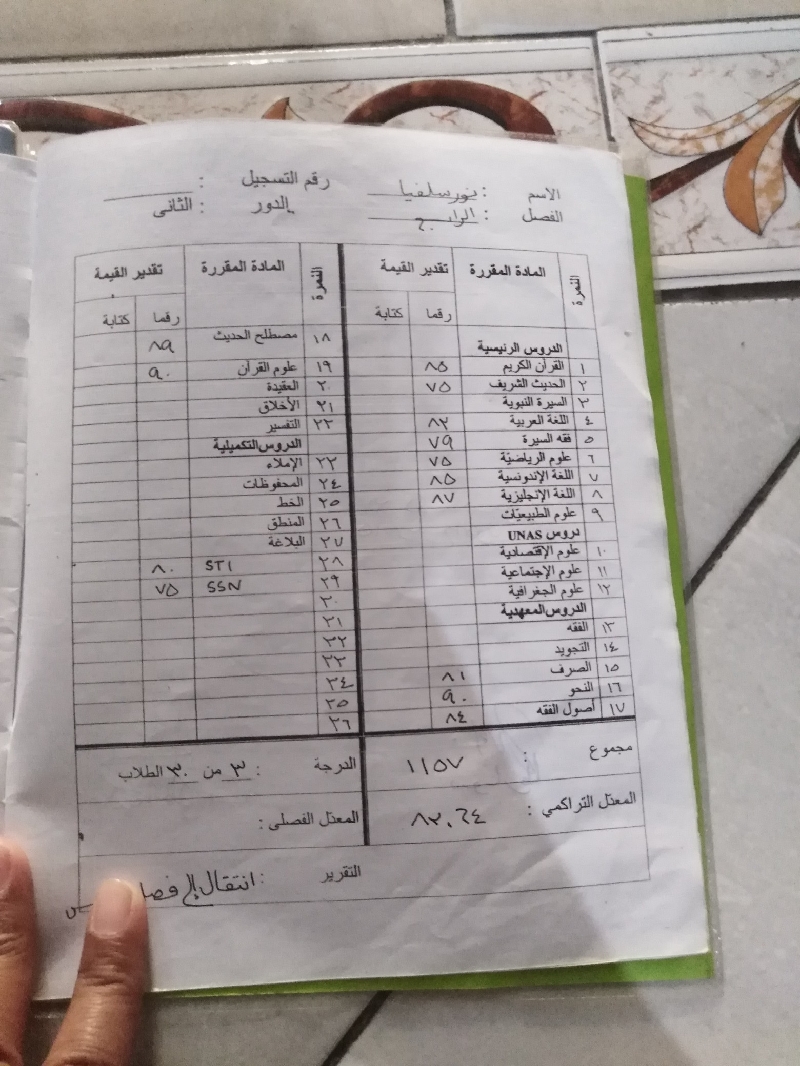 الاسم : نورسلفيا
رقم التسجيل :
الفصل : الرابع
الدور : الثانى
النمرة المادة المقررة تقدير القيمة
رقما كتابة
الدروس الرئيسية
١ القرآن الكريم ٨٥
٢ الحديث الشريف ٧٥
٣ السيرة النبوية
٤ اللغة العربية ٨٢
٥ فقه السيرة ٧٩
٦ علوم الرياضيّة ٧٥
٧ اللغة الإندونسية ٨٥
٨ اللغة الإنجليزية ٨٧
٩ علوم الطبيعيّات
دروس UNAS
١٠ علوم الإقتصادية
١١ علوم الإجتماعية
١٢ علوم الجغرافية
الدروس المعهدية
١٣ الفقه
١٤ التجويد
١٥ الصرف ٨١
١٦ النحو ٩٠
١٧ أصول الفقه ٨٤
النمرة المادة المقررة تقدير القيمة
رقما كتابة
١٨ مصطلح الحديث ٨٩
١٩ علوم القرآن ٩٠
٢٠ العقيدة
٢١ الأخلاق
٢٢ التفسير
الدروس التكميلية
٢٣ الإملاء
٢٤ المحفوظات
٢٥ الخط
٢٦ المنطق
٢٧ البلاغة
٢٨ STI ٨٠
٢٩ SSN ٧٥
٣٠
٣١
٣٢
٣٣
٣٤
٣٥
٣٦
مجموع : ١١٥٧
الدرجة : ٣ من ٣٠ الطلاب
المعدّل التراكمي : ٨٢,٦٤
المعدّل الفصلى :
التقرير : انتقال إلى فصل